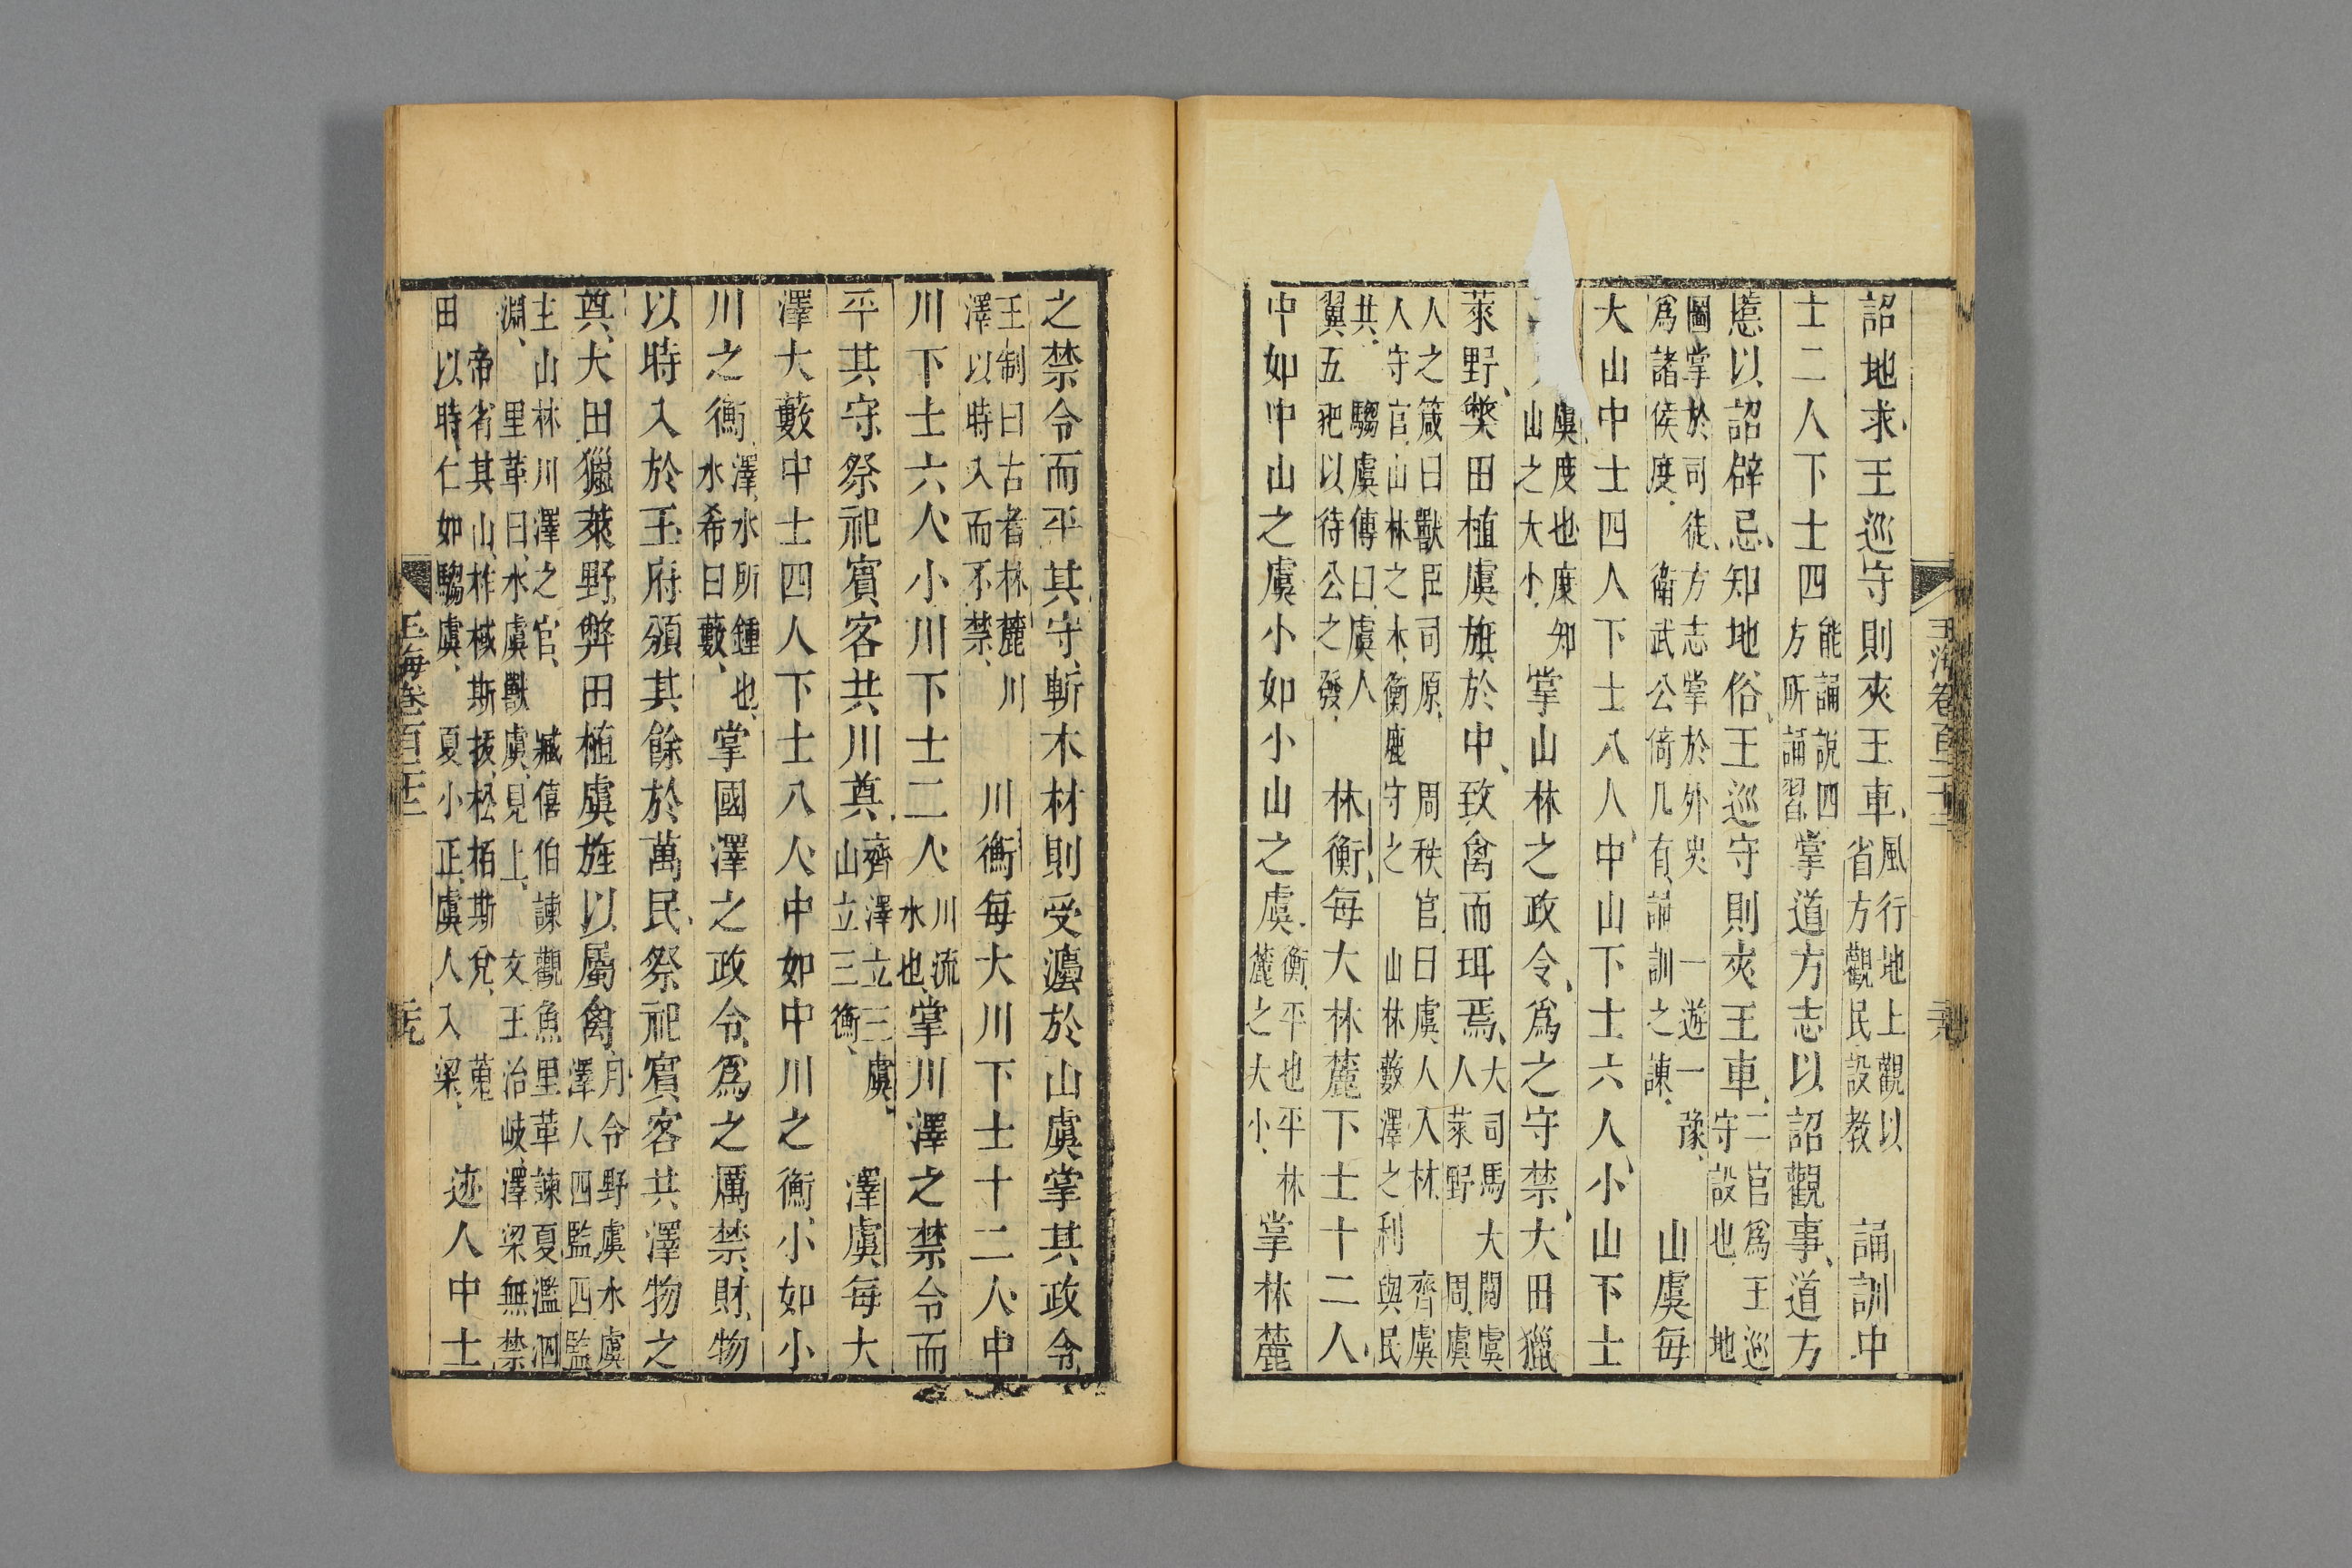 詔地求、王巡守則夾王車、風行地上觀以省方觀民設教　誦訓中
士二人下士四能誦說四方所誦習掌道方志以詔觀事、道方
慝以詔辟忌、知地俗、王巡守則夾王車、二官爲王巡守設也　地
圖掌於司徒、方志掌於外史　一遊一豫、爲諸侯度、衛武公倚几有誦訓之諫、　山虞每
大山中士四人下士八人中山下士六人小山下士
虞度也度知山之大小、掌山林之政令、爲之守禁、大田獵
萊野、獘田植虞旗於中、致禽而珥焉、大司馬大閱虞人萊野　周虞
人之箴曰獸臣司原、　周秩官曰虞人入材　齊虞人守官、山林之木、衡鹿守之　山林藪澤之利與民
共、騶虞傳曰、虞人翼五豝以待公之發、　林衡、每大林麓下士十二人、
中如中山之虞小如小山之虞、衡、平也平林麓之大小、掌林麓
玉海卷百二十三
之禁令而平其守、斬木材則受灋於山虞掌其政令
王制曰古者林麓川澤以時入而不禁、　川衡每大川下士十二人、中
川下士六人小川下士二人川流水也、掌川澤之禁令而
平其守祭祀賓客共川奠、齊澤立三虞山立三衡、　澤虞每大
澤大藪中士四人下士八人中如中川之衡小如小
川之衡、澤、水所鍾也、水希曰藪、掌國澤之政令、爲之厲禁、財物
以時入於王府頒其餘於萬民、祭祀賓客共澤物之
奠、大田獵萊野、弊田植虞旌以屬禽、月令野虞水虞澤人四監四監
主山林川澤之官、　臧僖伯諫觀魚里革諫夏濫泗淵、里革曰、水虞獸虞、見上、　文王治岐、澤梁無禁
帝省其山、柞棫斯拔、松柏斯兌、　蒐田以時、仁如騶虞、　夏小正、虞人入梁、　迹人中士
玉海卷百二十三